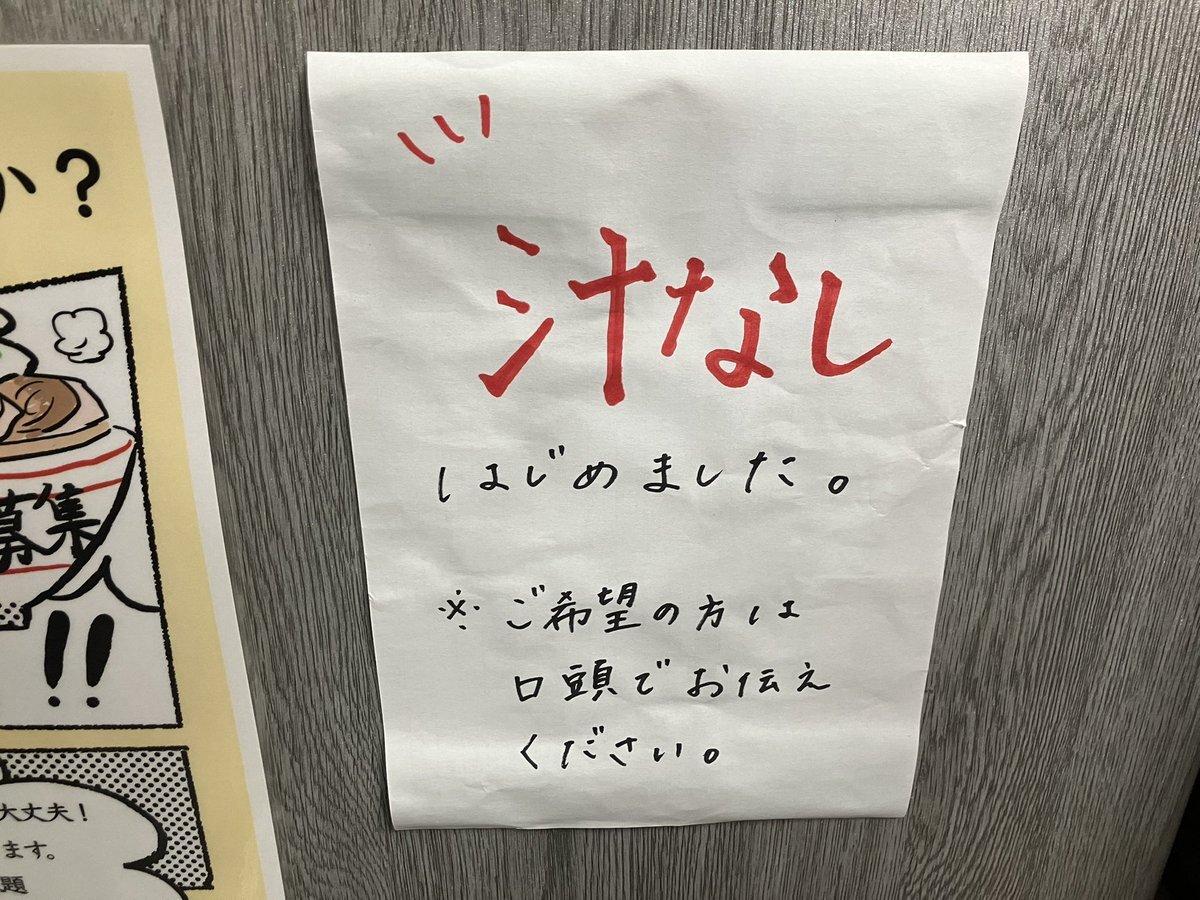 か?
募集
人
!!
大丈夫!
ます。
題
汁なし
はじめました。
※ご希望の方は
口頭でお伝え
ください。